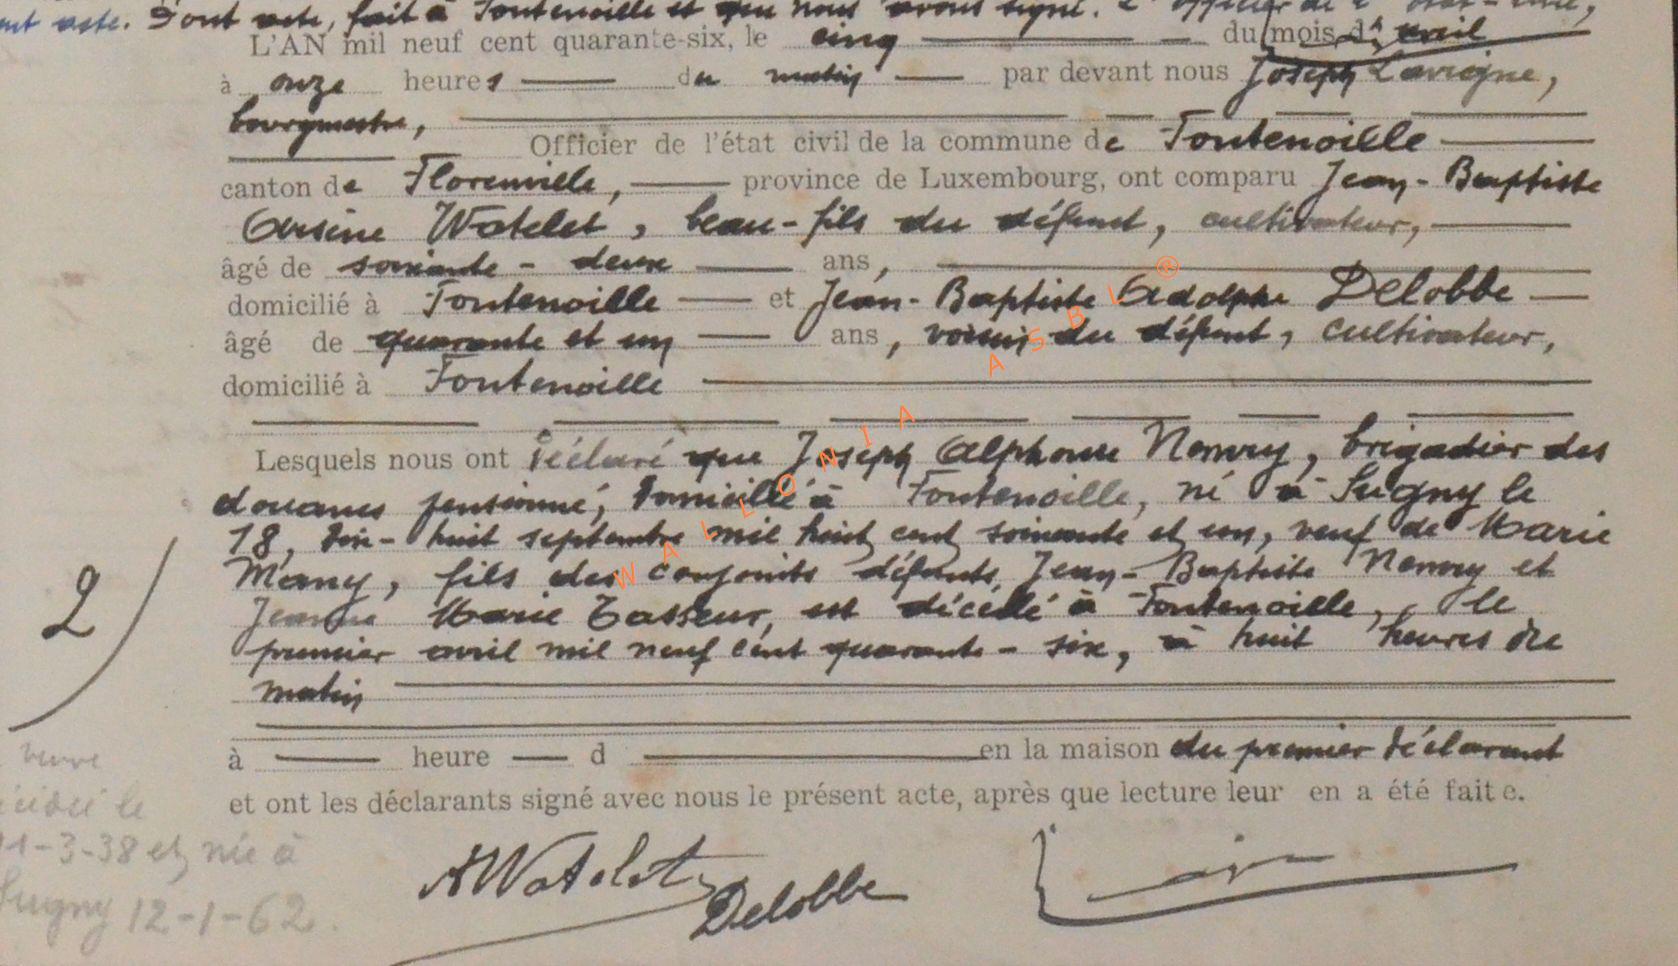 acte. Dont acte, fait à Fontenoille et que nous avons signé. L'officier de l'état-civil,
L'AN mil neuf cent quarante-six, le cinq du mois d'avril
à onze heures du matin par devant nous Joseph Lavigne,
bourgmestre,
Officier de l'état civil de la commune de Fontenoille
canton de Florenville, province de Luxembourg, ont comparu Jean-Baptiste
Arsène Watelet, beau-fils du défunt, cultivateur,
âgé de soixante-deux ans,
domicilié à Fontenoille et Jean-Baptiste Adolphe Delobbe
âgé de quarante et un ans, voisin du défunt, cultivateur,
domicilié à Fontenoille
Lesquels nous ont déclaré que Joseph Alphonse Nemry, brigadier des
douanes pensionné, domicilié à Fontenoille, né à Sugny le
18, dix-huit septembre mil huit cent soixante et un, veuf de Marie
Many, fils des conjoints défunts Jean-Baptiste Nemry et
Jeanne Marie Tasseur, est décédé à Fontenoille, le
premier avril mil neuf cent quarante-six, à huit heures du
matin
2)
à heure d en la maison du premier déclarant
et ont les déclarants signé avec nous le présent acte, après que lecture leur en a été faite.
AWatelet
Delobbe
11-3-38 et née à
Sugny 12-1-62.
WALLONIA ASBL ®